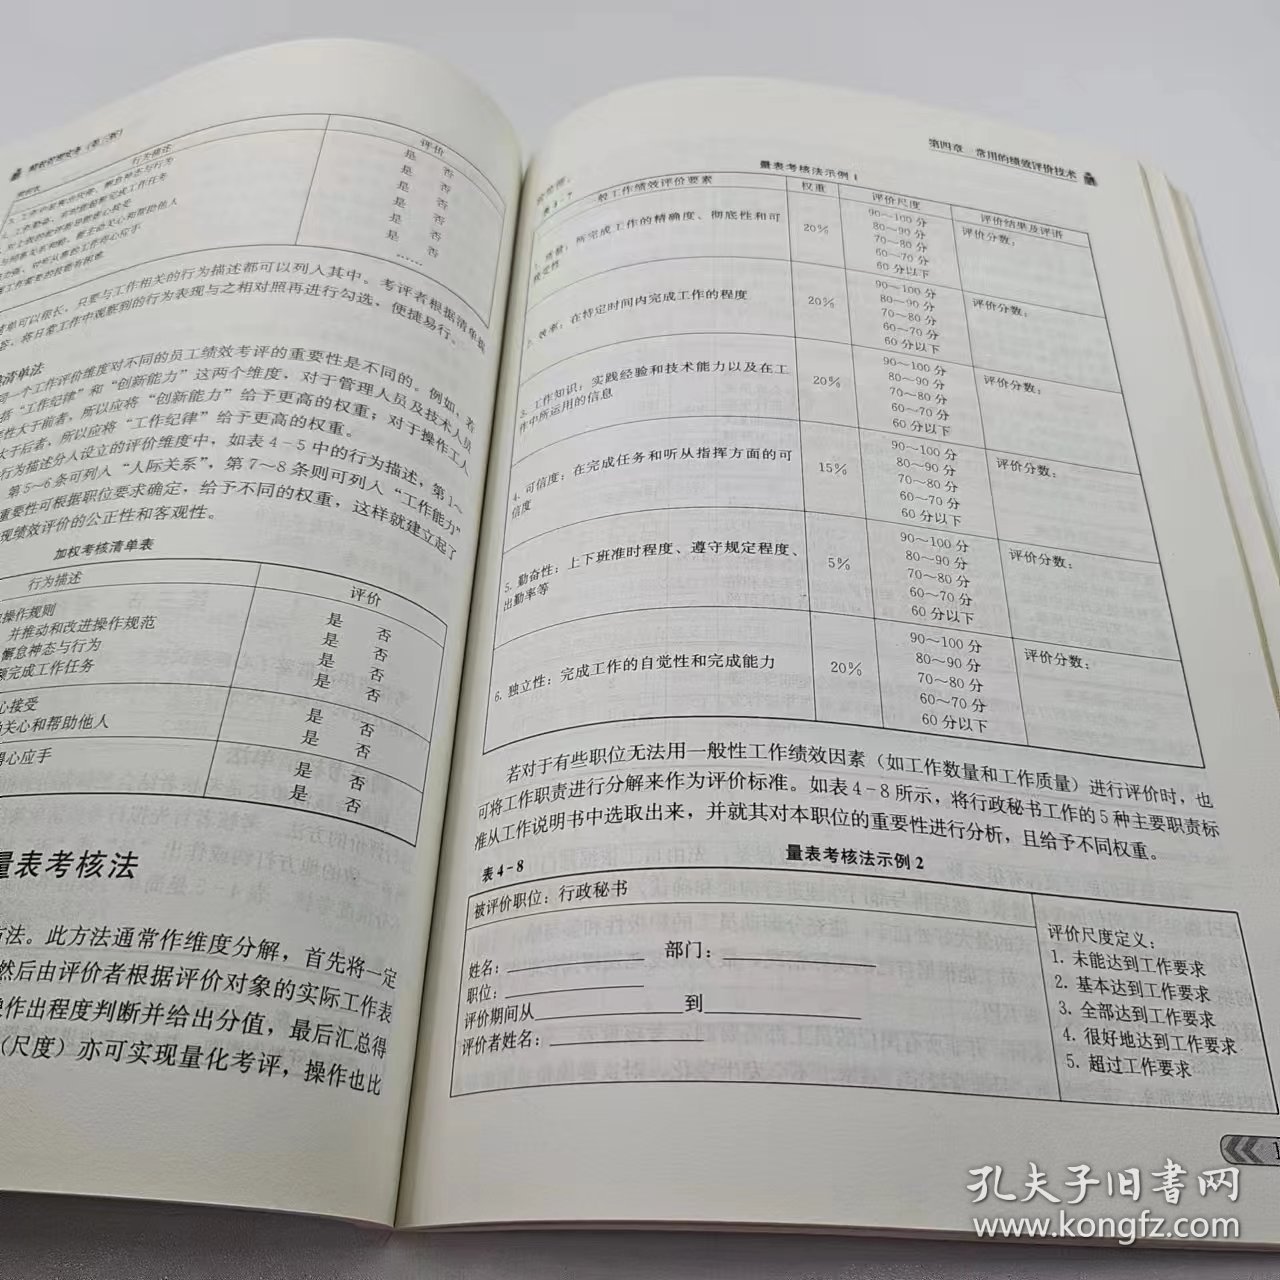 行为描述 评价
是 否
是 否
是 否
是 否
是 否
是 否
……
清单可以很长，只要与工作相关的行为描述都可以列入其中。考评者根据清单
将日常工作中观察到的行为表现与之相对照再进行勾选，便捷易行。
清单法
同一个工作评价维度对不同的员工绩效考评的重要性是不同的。例如，若
括“工作纪律”和“创新能力”这两个维度，对于管理人员及技术人员
性大于前者，所以应将“创新能力”给予更高的权重；对于操作工人
大于后者，所以应将“工作纪律”给予更高的权重。
行为描述分人设立的评价维度中，如表4-5中的行为描述，第1～
第5～6条可列入“人际关系”，第7～8条则可列入“工作能力”
重要性可根据职位要求确定，给予不同的权重，这样就建立起了
现绩效评价的公正性和客观性。
加权考核清单表
行为描述 评价
操作规则 是 否
并推动和改进操作规范 是 否
懈怠神态与行为 是 否
完成工作任务 是 否
心接受 是 否
关心和帮助他人 是 否
得心应手 是 否
是 否
量表考核法
方法。此方法通常作维度分解，首先将一定
然后由评价者根据评价对象的实际工作表
作出程度判断并给出分值，最后汇总得
（尺度）亦可实现量化考评，操作也比
第四章 常用的绩效评价技术
表4-7 量表考核法示例1
一般工作绩效评价要素 权重 评价尺度 评价结果及评讲
1. 质量：所完成工作的精确度、彻底性和可
接受性
20%
90～100分
80～90分
70～80分
60分以下
评价分数：
2. 效率：在特定时间内完成工作的程度
20%
90～100分
80～90分
70～80分
60～70分
60分以下
评价分数：
3. 工作知识：实践经验和技术能力以及在工
作中所运用的信息
20%
90～100分
80～90分
70～80分
60～70分
60分以下
评价分数：
4. 可信度：在完成任务和听从指挥方面的可
信度
15%
90～100分
80～90分
70～80分
60～70分
60分以下
评价分数：
5. 勤奋性：上下班准时程度、遵守规定程度、
出勤率等
5%
90～100分
80～90分
70～80分
60～70分
60分以下
评价分数：
6. 独立性：完成工作的自觉性和完成能力
20%
90～100分
80～90分
70～80分
60～70分
60分以下
评价分数：
若对于有些职位无法用一般性工作绩效因素（如工作数量和工作质量）进行评价时，也
可将工作职责进行分解来作为评价标准。如表4-8所示，将行政秘书工作的5种主要职责标
准从工作说明书中选取出来，并就其对本职位的重要性进行分析，且给予不同权重。
表4-8 量表考核法示例2
被评价职位：行政秘书
姓名： 部门：
职位：
评价期间从 到
评价者姓名：
评价尺度定义：
1. 未能达到工作要求
2. 基本达到工作要求
3. 全部达到工作要求
4. 很好地达到工作要求
5. 超过工作要求
孔夫子旧书网
www.kongfz.com